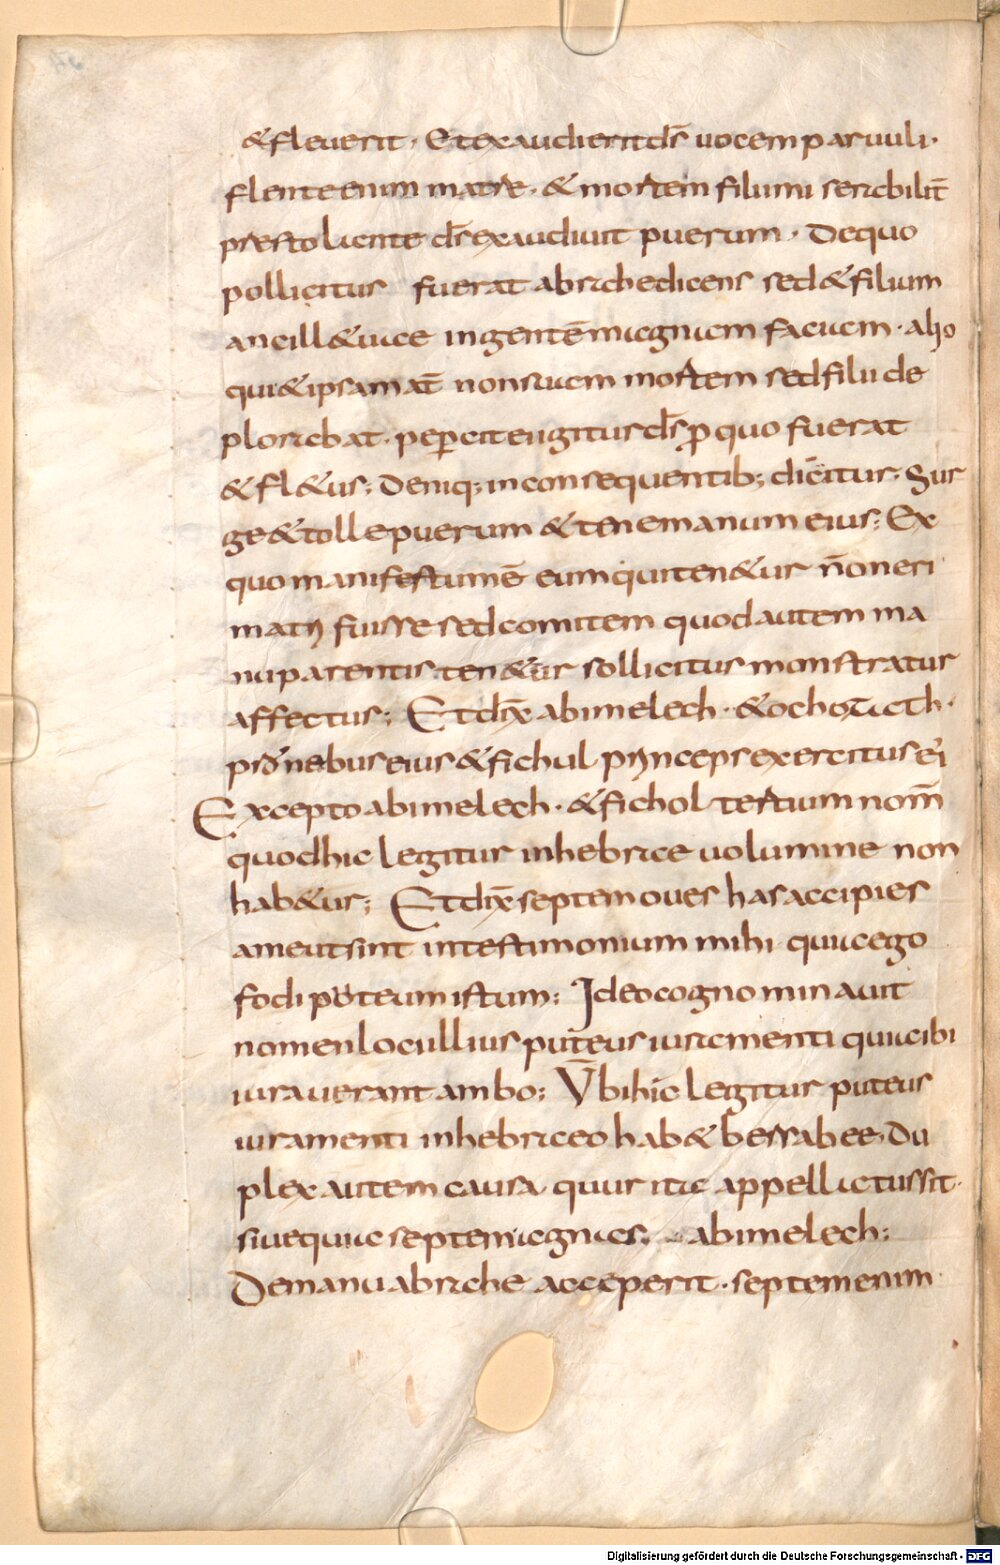 &fleuerit · Et exaudierit d̄s uocem paruuli ·
flente enim matre · & mortem filii miserabilit̄
prestolante d̄s exaudiuit puerum · De quo
pollicitus fuerat abrahe dicens sed & filium
ancille & uice in gentē magnam faciam · alio
qui & ipsa mat̄ non suam mortem sed filii de
plorabat · pepercit engitur d̄s p̱ quo fuerat
& fl&us ; Deniq; in consequentib; dicitur · Sur
ge & tolle puerum & tene manum eius ; Ex
quo manifestum ē eum qui ten&ur n̄ oneri
matri fuisse sed comitem quod autem ma
nu parentis ten&ur sollicitus monstratur
affectus ; Et dix̄ abimelech · & ochozath ·
pronubus eius & fichul princeps exercitus ei
Excepto abimelech · & fichol tertium nom̄
quod hic legitur in hebrae uolumine non
hab&ur ; Et dix̄ septem oues has accipies
a me ut sint in testimonium mihi quia ego
fodi puteum istum ; Ideo cognominauit
nomen loculllius puteus iuramenti quia ibi
iurauerant ambo ; Ubi hic legitur puteus
iuramenti in hebraeo hab& bersabee · Du
plex autem causa quur ita appellatus sit ·
siue quia septem agnas abimelech ;
De manu abrahe acceperit · septem enim
Digitalisierung gefördert durch die Deutsche Forschungsgemeinschaft - DFG